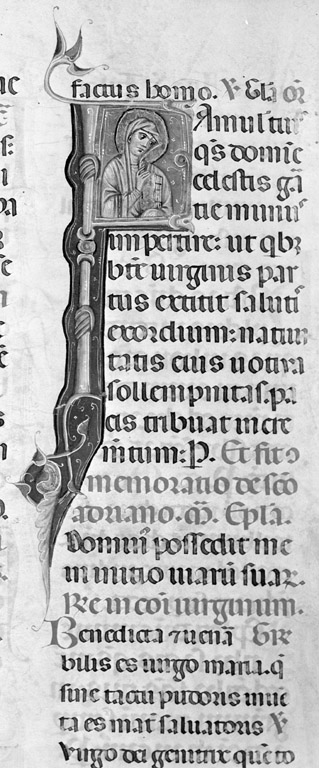 factus homo. V Gła or
Famulis tuis
qs domine
celestis gra
tie munus
impertire: ut qbz
bte uirginis par
tus extitit saluti
exordium: natiui
tatis eius uotiua
sollempnitas. pa
cis tribuat incre
mtum: P. Et fit 9
memoratio de sco
adriano. Epla.
Domin possedit me
in initio uiarū suaꝝ.
Re in coi uirginum.
Benedicta ⁊ uenā Gre
bilis es uirgo maria. q̄
sine tactu pudoris inue
ta es mat saluatoris V
Virgo dei genitrix que to